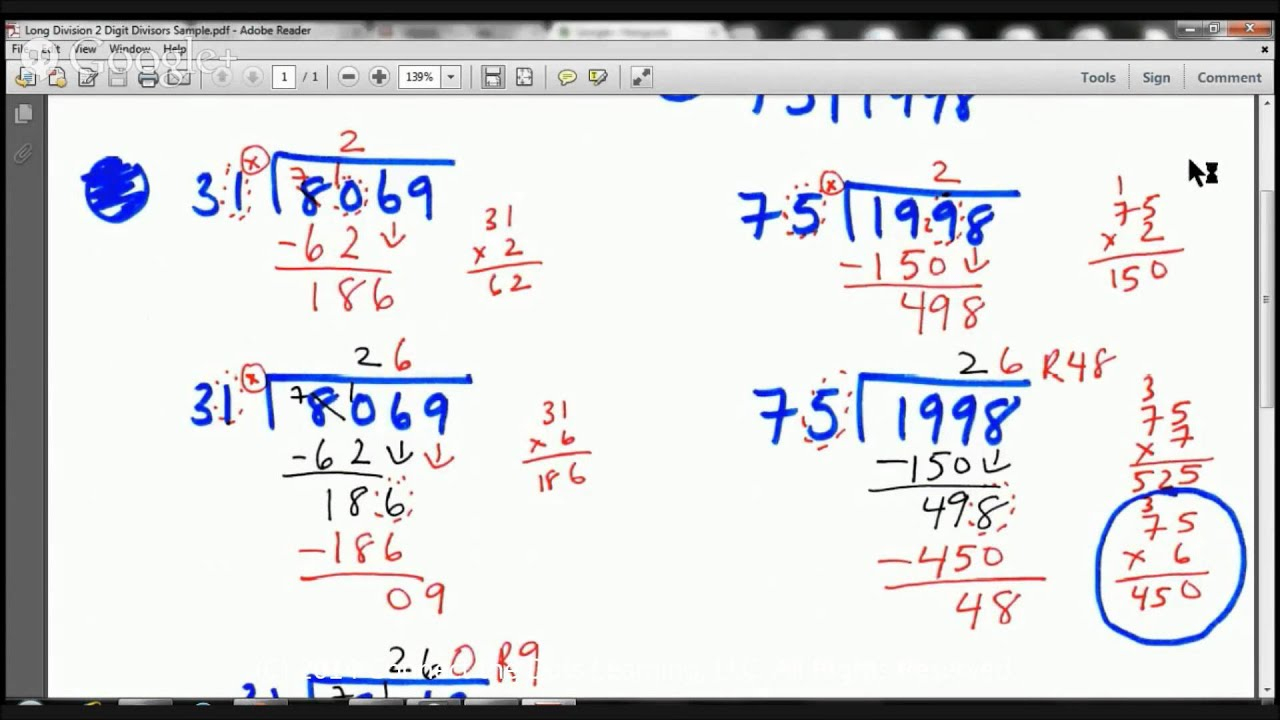 Long Division 2 Digit Divisors Sample.pdf - Adobe Reader
File Edit View Window Help
Google+
1 / 1 139% Tools Sign Comment
75 1998
2
31 x 7 1 8069
-62
186
31
x 2
62
2
75 x 1998
2
-150
498
1
75
x 2
150
26
31 x 7 1 8069
-62
186
-186
09
31
x 6
186
26 R48
75 1998
-150
498
-450
48
3
75
x 7
525
3
75
x 6
450
260 R9
31 7 1
(C) 2014 Connect the Dots Learning, LLC. All Rights Reserved